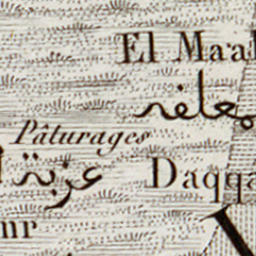 El Maa
معلقه
Pâturages
عزبة
Daqqa
nr